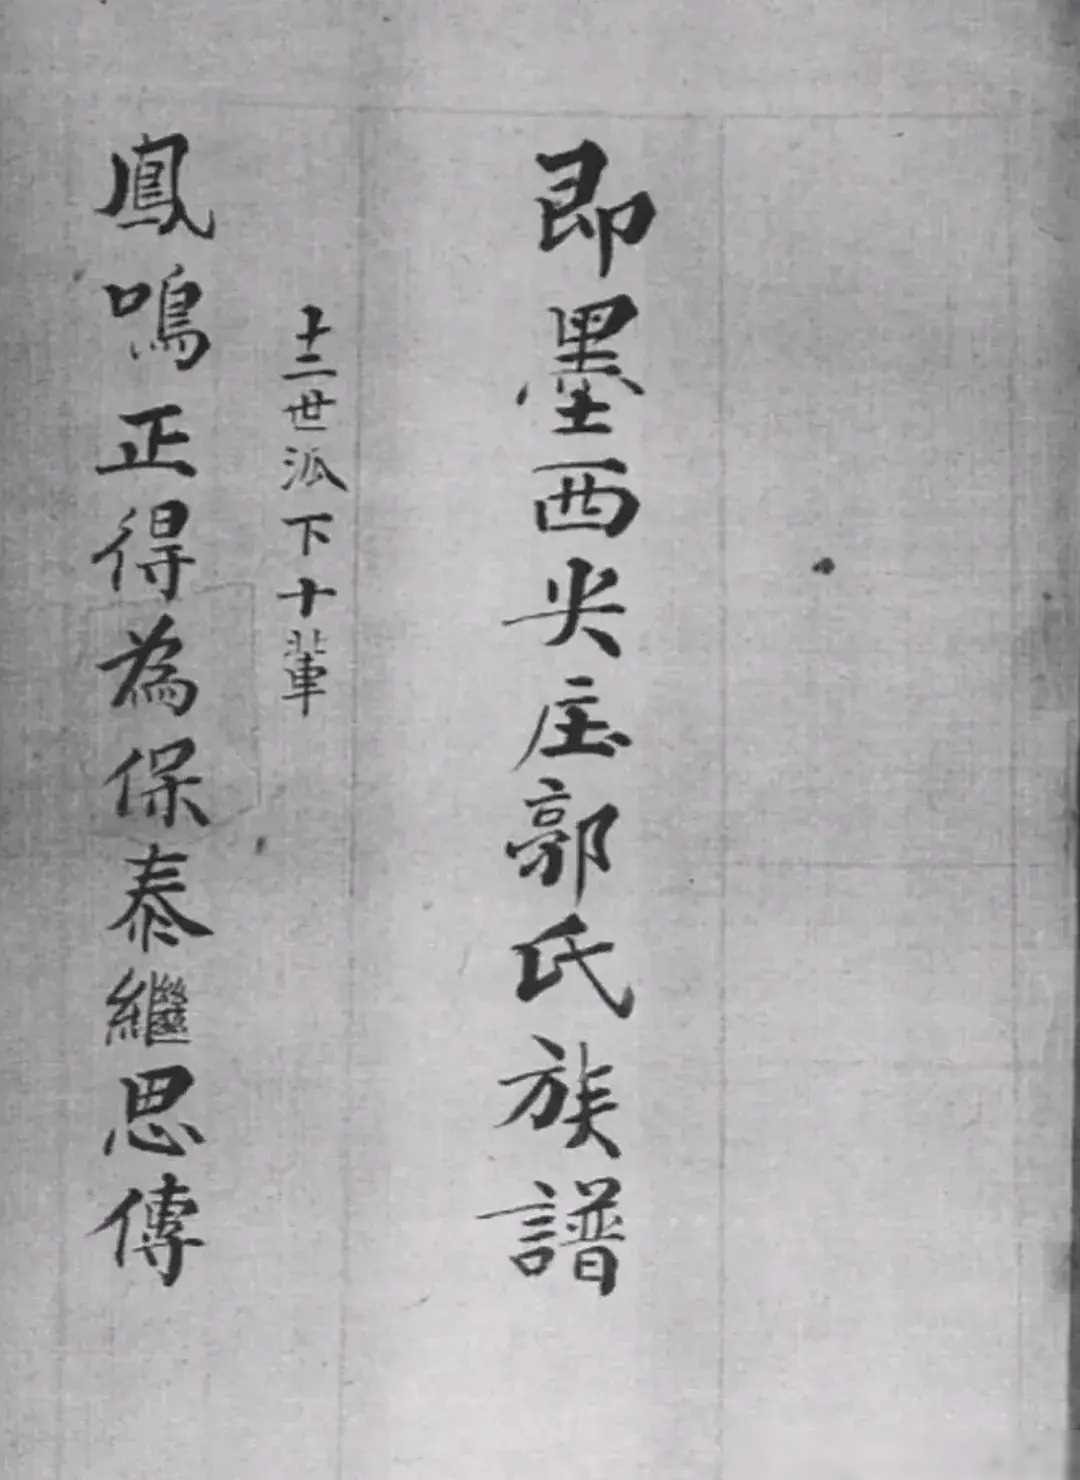 即墨西尖庄郭氏族譜
十二世派下十輩
鳳鳴正得為保泰繼思傳